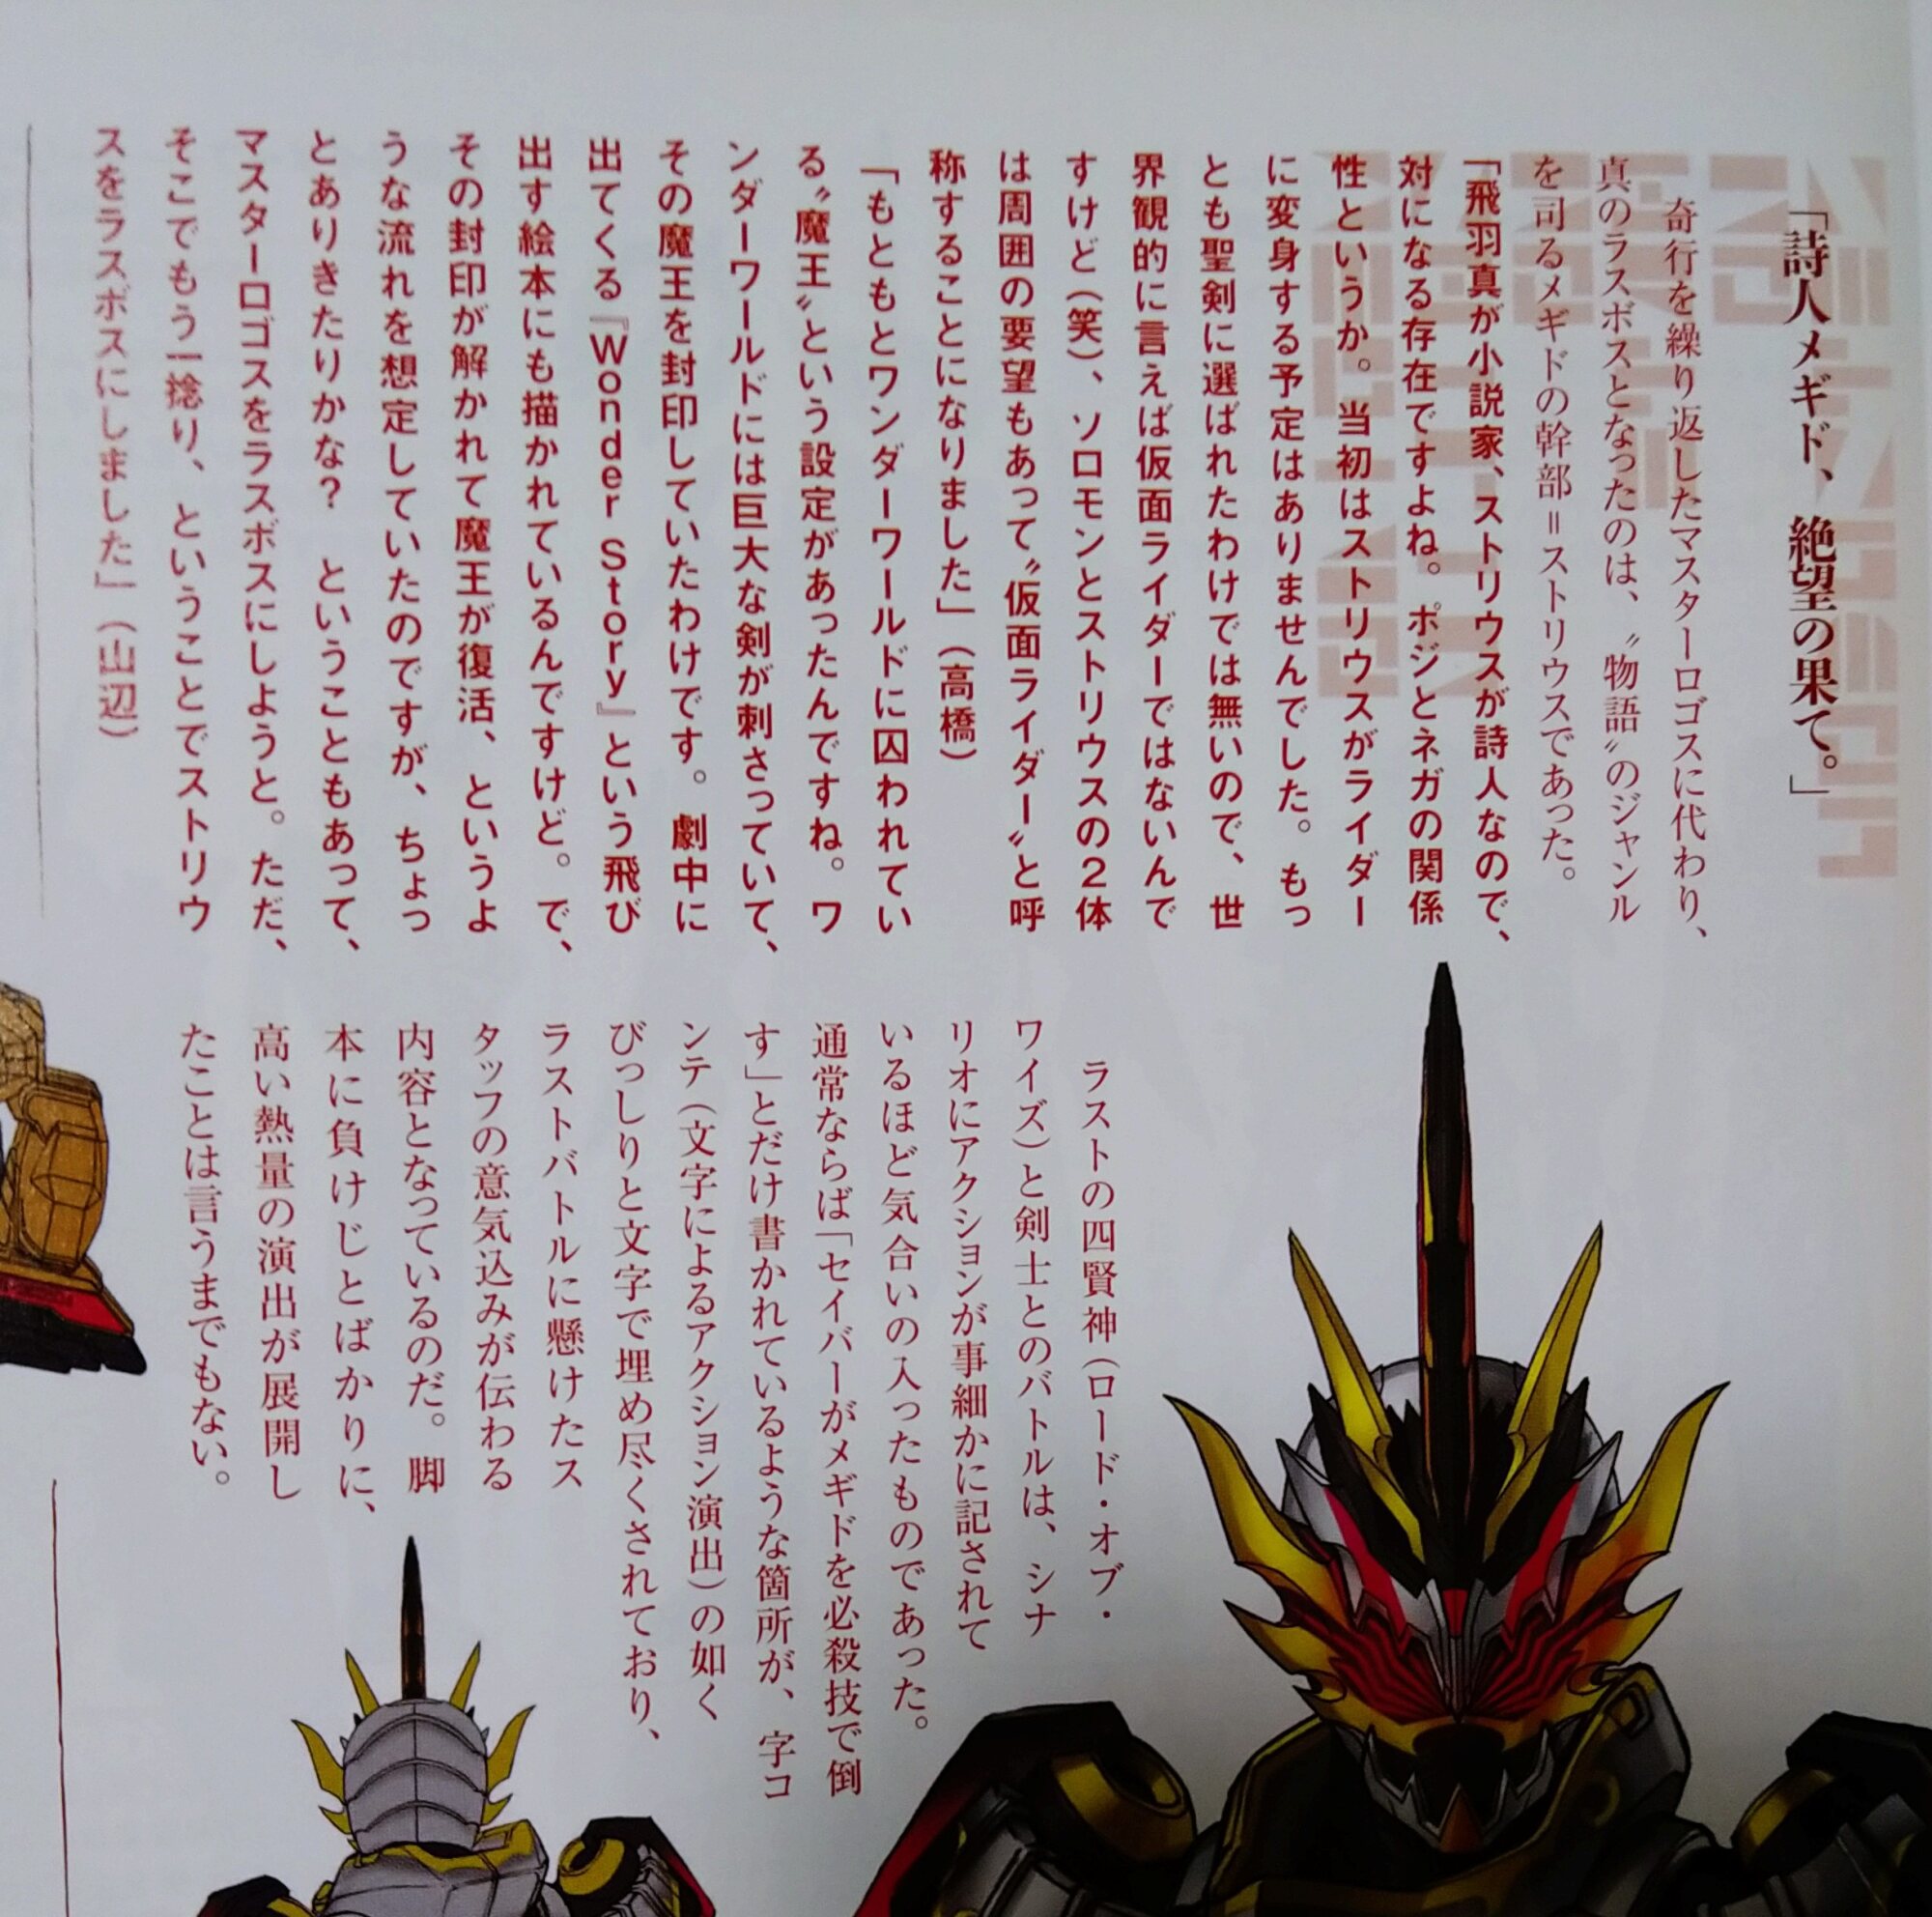 「詩人メギド、絶望の果て。」
奇行を繰り返したマスターロゴスに代わり、
真のラスボスとなったのは、〝物語〟のジャンル
を司るメギドの幹部＝ストリウスであった。
「飛羽真が小説家、ストリウスが詩人なので、
対になる存在ですよね。ポジとネガの関係
性というか。当初はストリウスがライダー
に変身する予定はありませんでした。もっ
とも聖剣に選ばれたわけでは無いので、世
界観的に言えば仮面ライダーではないんで
すけど（笑）、ソロモンとストリウスの2体
は周囲の要望もあって〝仮面ライダー〟と呼
称することになりました」（高橋）
「もともとワンダーワールドに囚われてい
る〝魔王〟という設定があったんですね。ワ
ンダーワールドには巨大な剣が刺さっていて、
その魔王を封印していたわけです。劇中に
出てくる『Wonder Story』という飛び
出す絵本にも描かれているんですけど。で、
その封印が解かれて魔王が復活、というよ
うな流れを想定していたのですが、ちょっ
とありきたりかな？　ということもあって、
マスターロゴスをラスボスにしようと。ただ、
そこでもう一捻り、ということでストリウ
スをラスボスにしました」（山辺）
ラストの四賢神（ロード・オブ・
ワイズ）と剣士とのバトルは、シナ
リオにアクションが事細かに記されて
いるほど気合いの入ったものであった。
通常ならば「セイバーがメギドを必殺技で倒
す」とだけ書かれているような箇所が、字コ
ンテ（文字によるアクション演出）の如く
びっしりと文字で埋め尽くされており、
ラストバトルに懸けたス
タッフの意気込みが伝わる
内容となっているのだ。脚
本に負けじとばかりに、
高い熱量の演出が展開し
たことは言うまでもない。